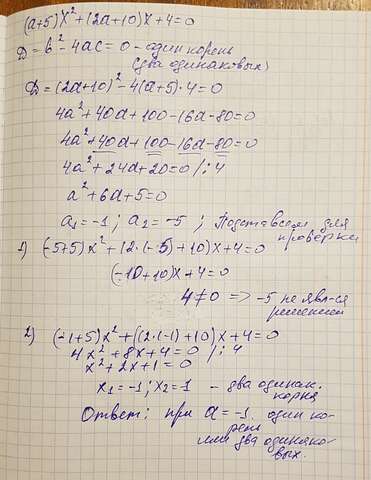 (a+5)x²+(2a+10)x+4=0
D=b²-4ac=0 - один корень
(два одинаковых)
D=(2a+10)²-4(a+5)·4=0
4a²+40a+100-16a-80=0
4a²+40a+100-16a-80=0
4a²+24a+20=0 /:4
a²+6a+5=0
a₁=-1; a₂=-5; Подставим для
проверки
1) (-5+5)x²+(2·(-5)+10)x+4=0
(-10+10)x+4=0
4≠0 => -5 не явл-ся
решением
2) (-1+5)x²+((2·(-1)+10)x+4=0
4x²+8x+4=0 /:4
x²+2x+1=0
x₁=-1; x₂=1 - два одинак.
корня
Ответ: при a=-1 один ко-
рень
или два одинако-
вых.